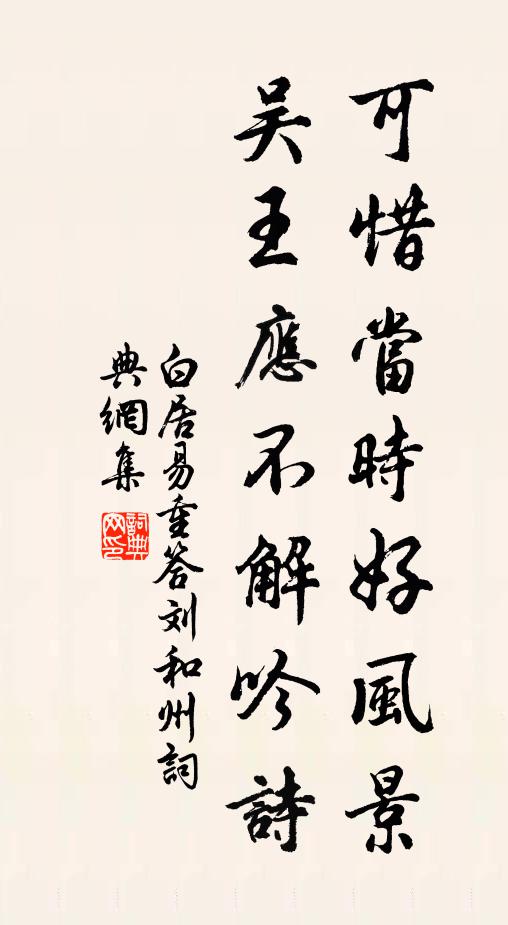 可惜當時好風景
吳王應不解吟詩
白居易重答刘和州詞
典網集
詞典網印